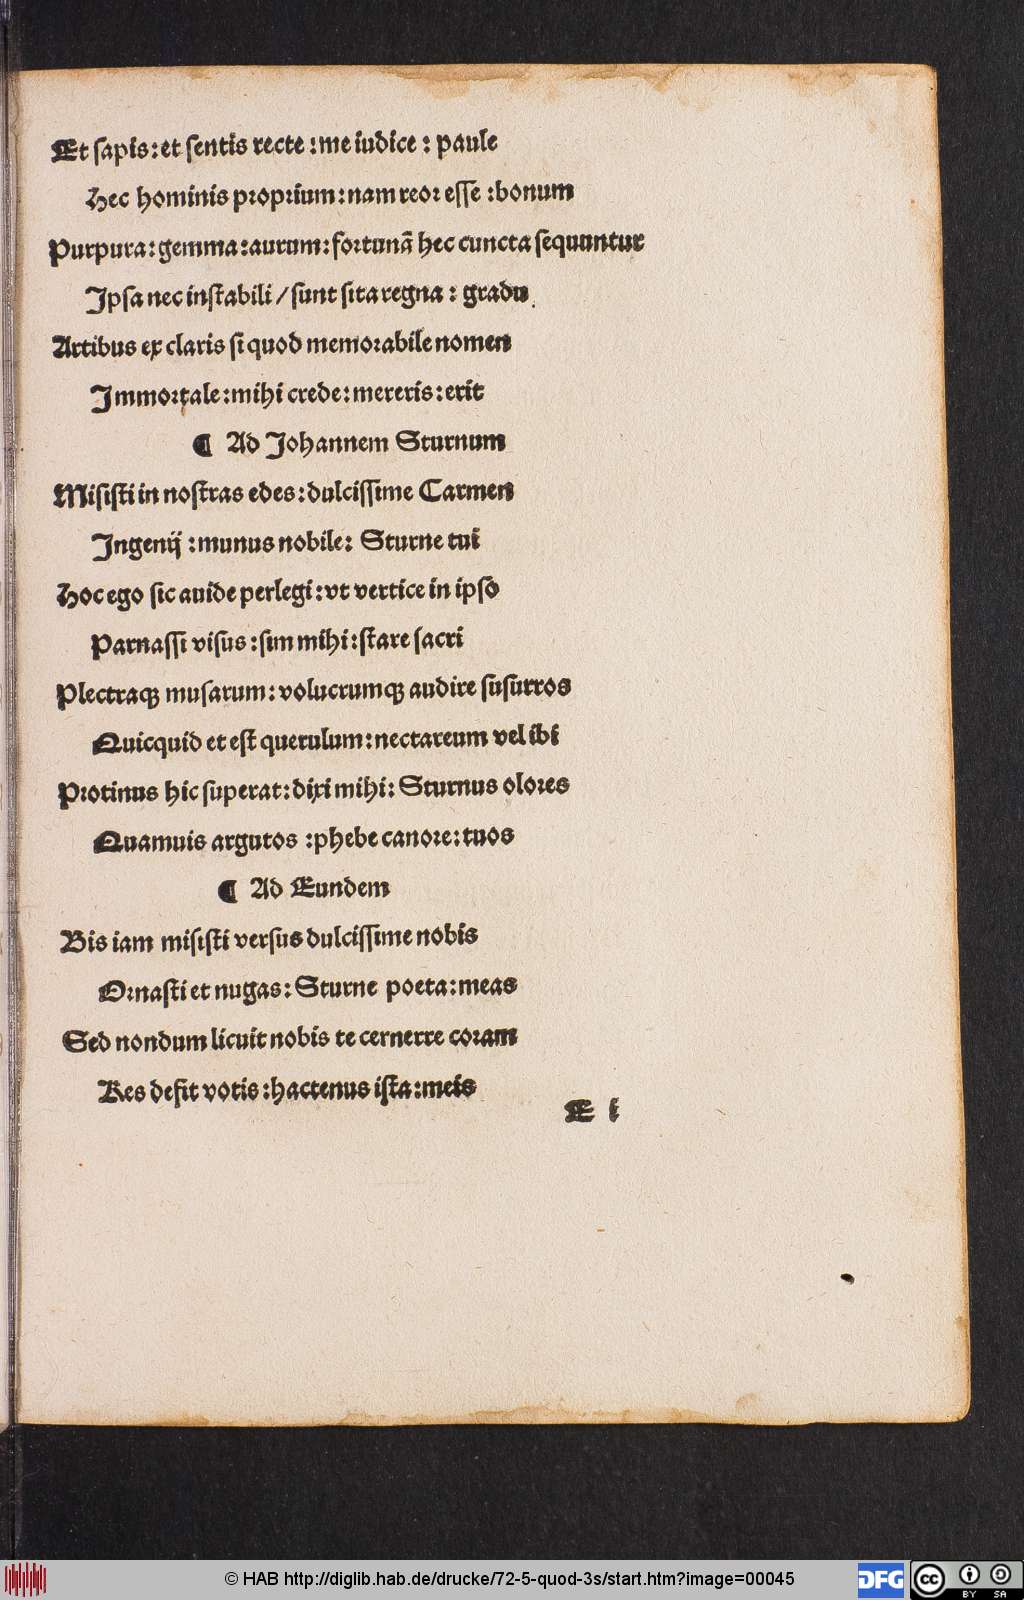 Et sapis: et sentis recte: me iudice: paule
Hec hominis proprium: nam reor esse: bonum
Purpura: gemma: aurum: fortunā hec cuncta sequuntur
Ipsa nec instabili / sunt sita regna: gradu.
Artibus ex claris si quod memorabile nomen
Immortale: mihi crede: mereris: erit
¶ Ad Johannem Sturnum
Misisti in nostras edes: dulcissime Carmen
Ingenij: munus nobile: Sturne tui
Hoc ego sic auide perlegi: vt vertice in ipso
Parnassi visus: sim mihi: stare sacri
Plectraqꝫ musarum: volucrumqꝫ audire susurros
Quicquid et est querulum: nectareum vel ibi
Protinus hic superat: dixi mihi: Sturnus olores
Quamuis argutos: phebe canore: tuos
¶ Ad Eundem
Bis iam misisti versus dulcissime nobis
Ornasti et nugas: Sturne poeta: meas
Sed nondum licuit nobis te cernerre coram
Res defit votis: hactenus ista: meis
E i
© HAB http://diglib.hab.de/drucke/72-5-quod-3s/start.htm?image=00045
DFG
cc BY SA